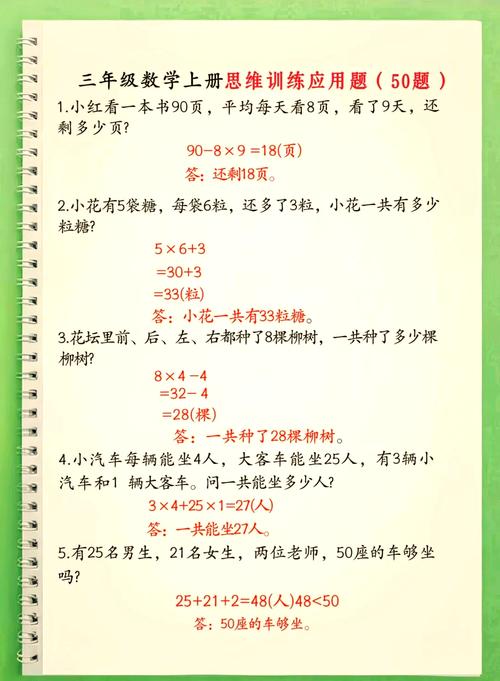 三年级数学上册思维训练应用题（50题）
1.小红看一本书90页，平均每天看8页，看了9天，还
剩多少页?
90-8×9=18(页)
答：还剩18页。
2.小花有5袋糖，每袋6粒，还多了3粒，小花一共有多少
粒糖?
5×6+3
=30+3
=33(粒)
答：小花一共有33粒糖。
3.花坛里前、后、左、右都种了8棵柳树，一共种了多少棵
柳树?
8×4-4
=32-4
=28(棵)
答：一共种了28棵柳树。
4.小汽车每辆能坐4人，大客车能坐25人，有3辆小
汽车和1 辆大客车。问一共能坐多少人?
3×4+25×1=27(人)
答：一共能坐27人。
5.有25名男生，21名女生，两位老师，50座的车够坐
吗?
25+21+2=48(人)48<50
答：50座的车够坐。